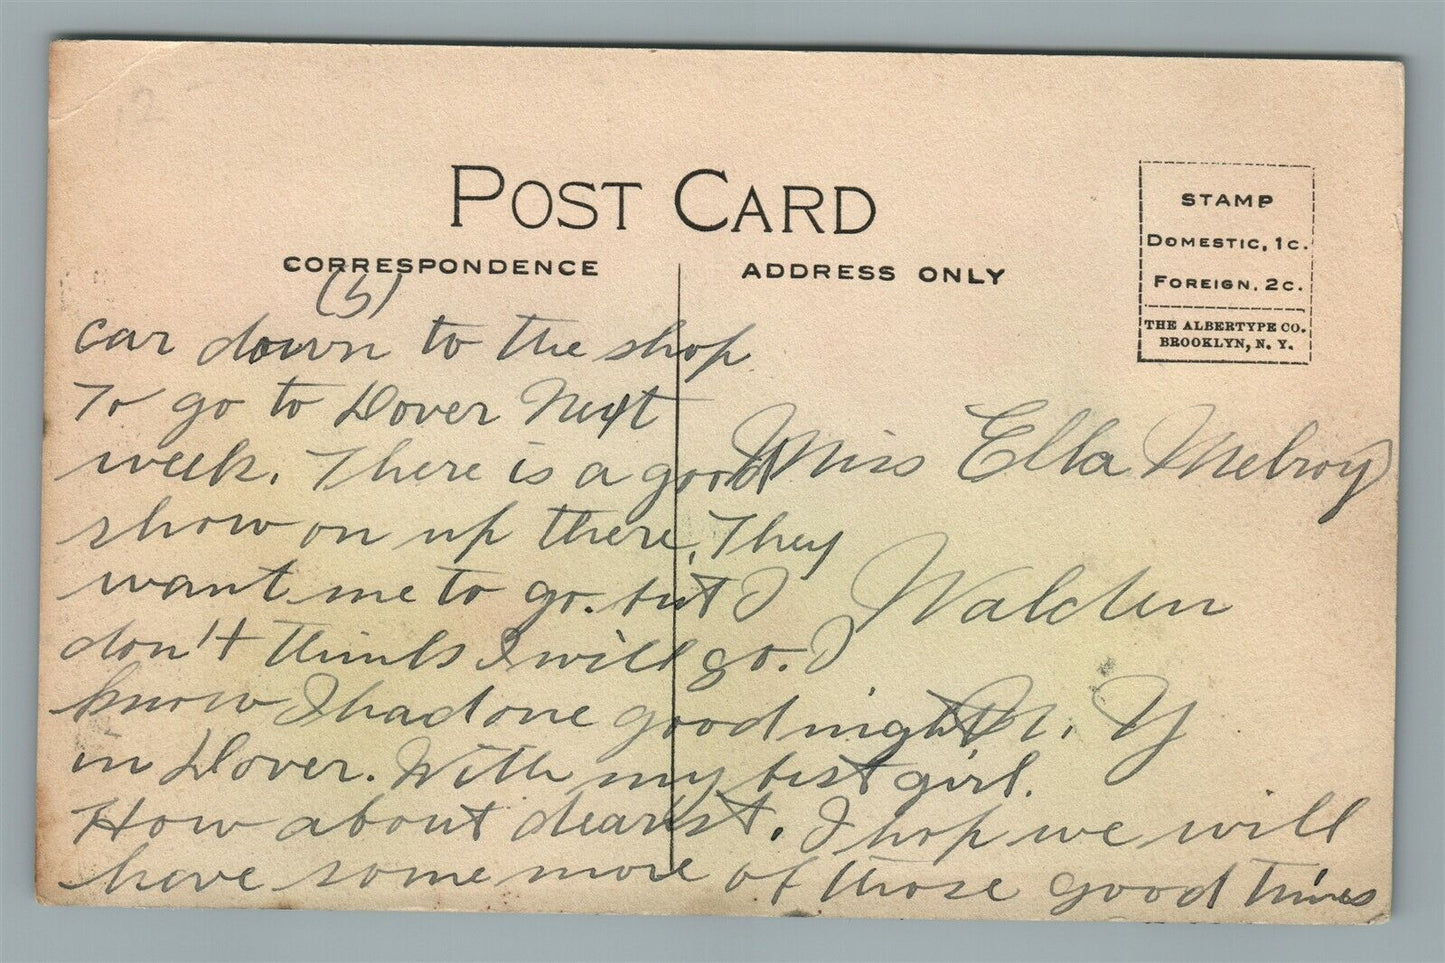 12
POST CARD
CORRESPONDENCE
ADDRESS ONLY
STAMP
DOMESTIC, 1c.
FOREIGN, 2c.
THE ALBERTYPE CO.
BROOKLYN, N. Y.
(5)
car down to the shop
To go to Dover Next
week. There is a good
show on up there. They
want me to go. but I
don't think I will go. I
know I had one good night
in Dover. With my best girl.
How about dearest. I hop we will
have some more of those good times
Miss Ella Melroy
Walden
N. Y